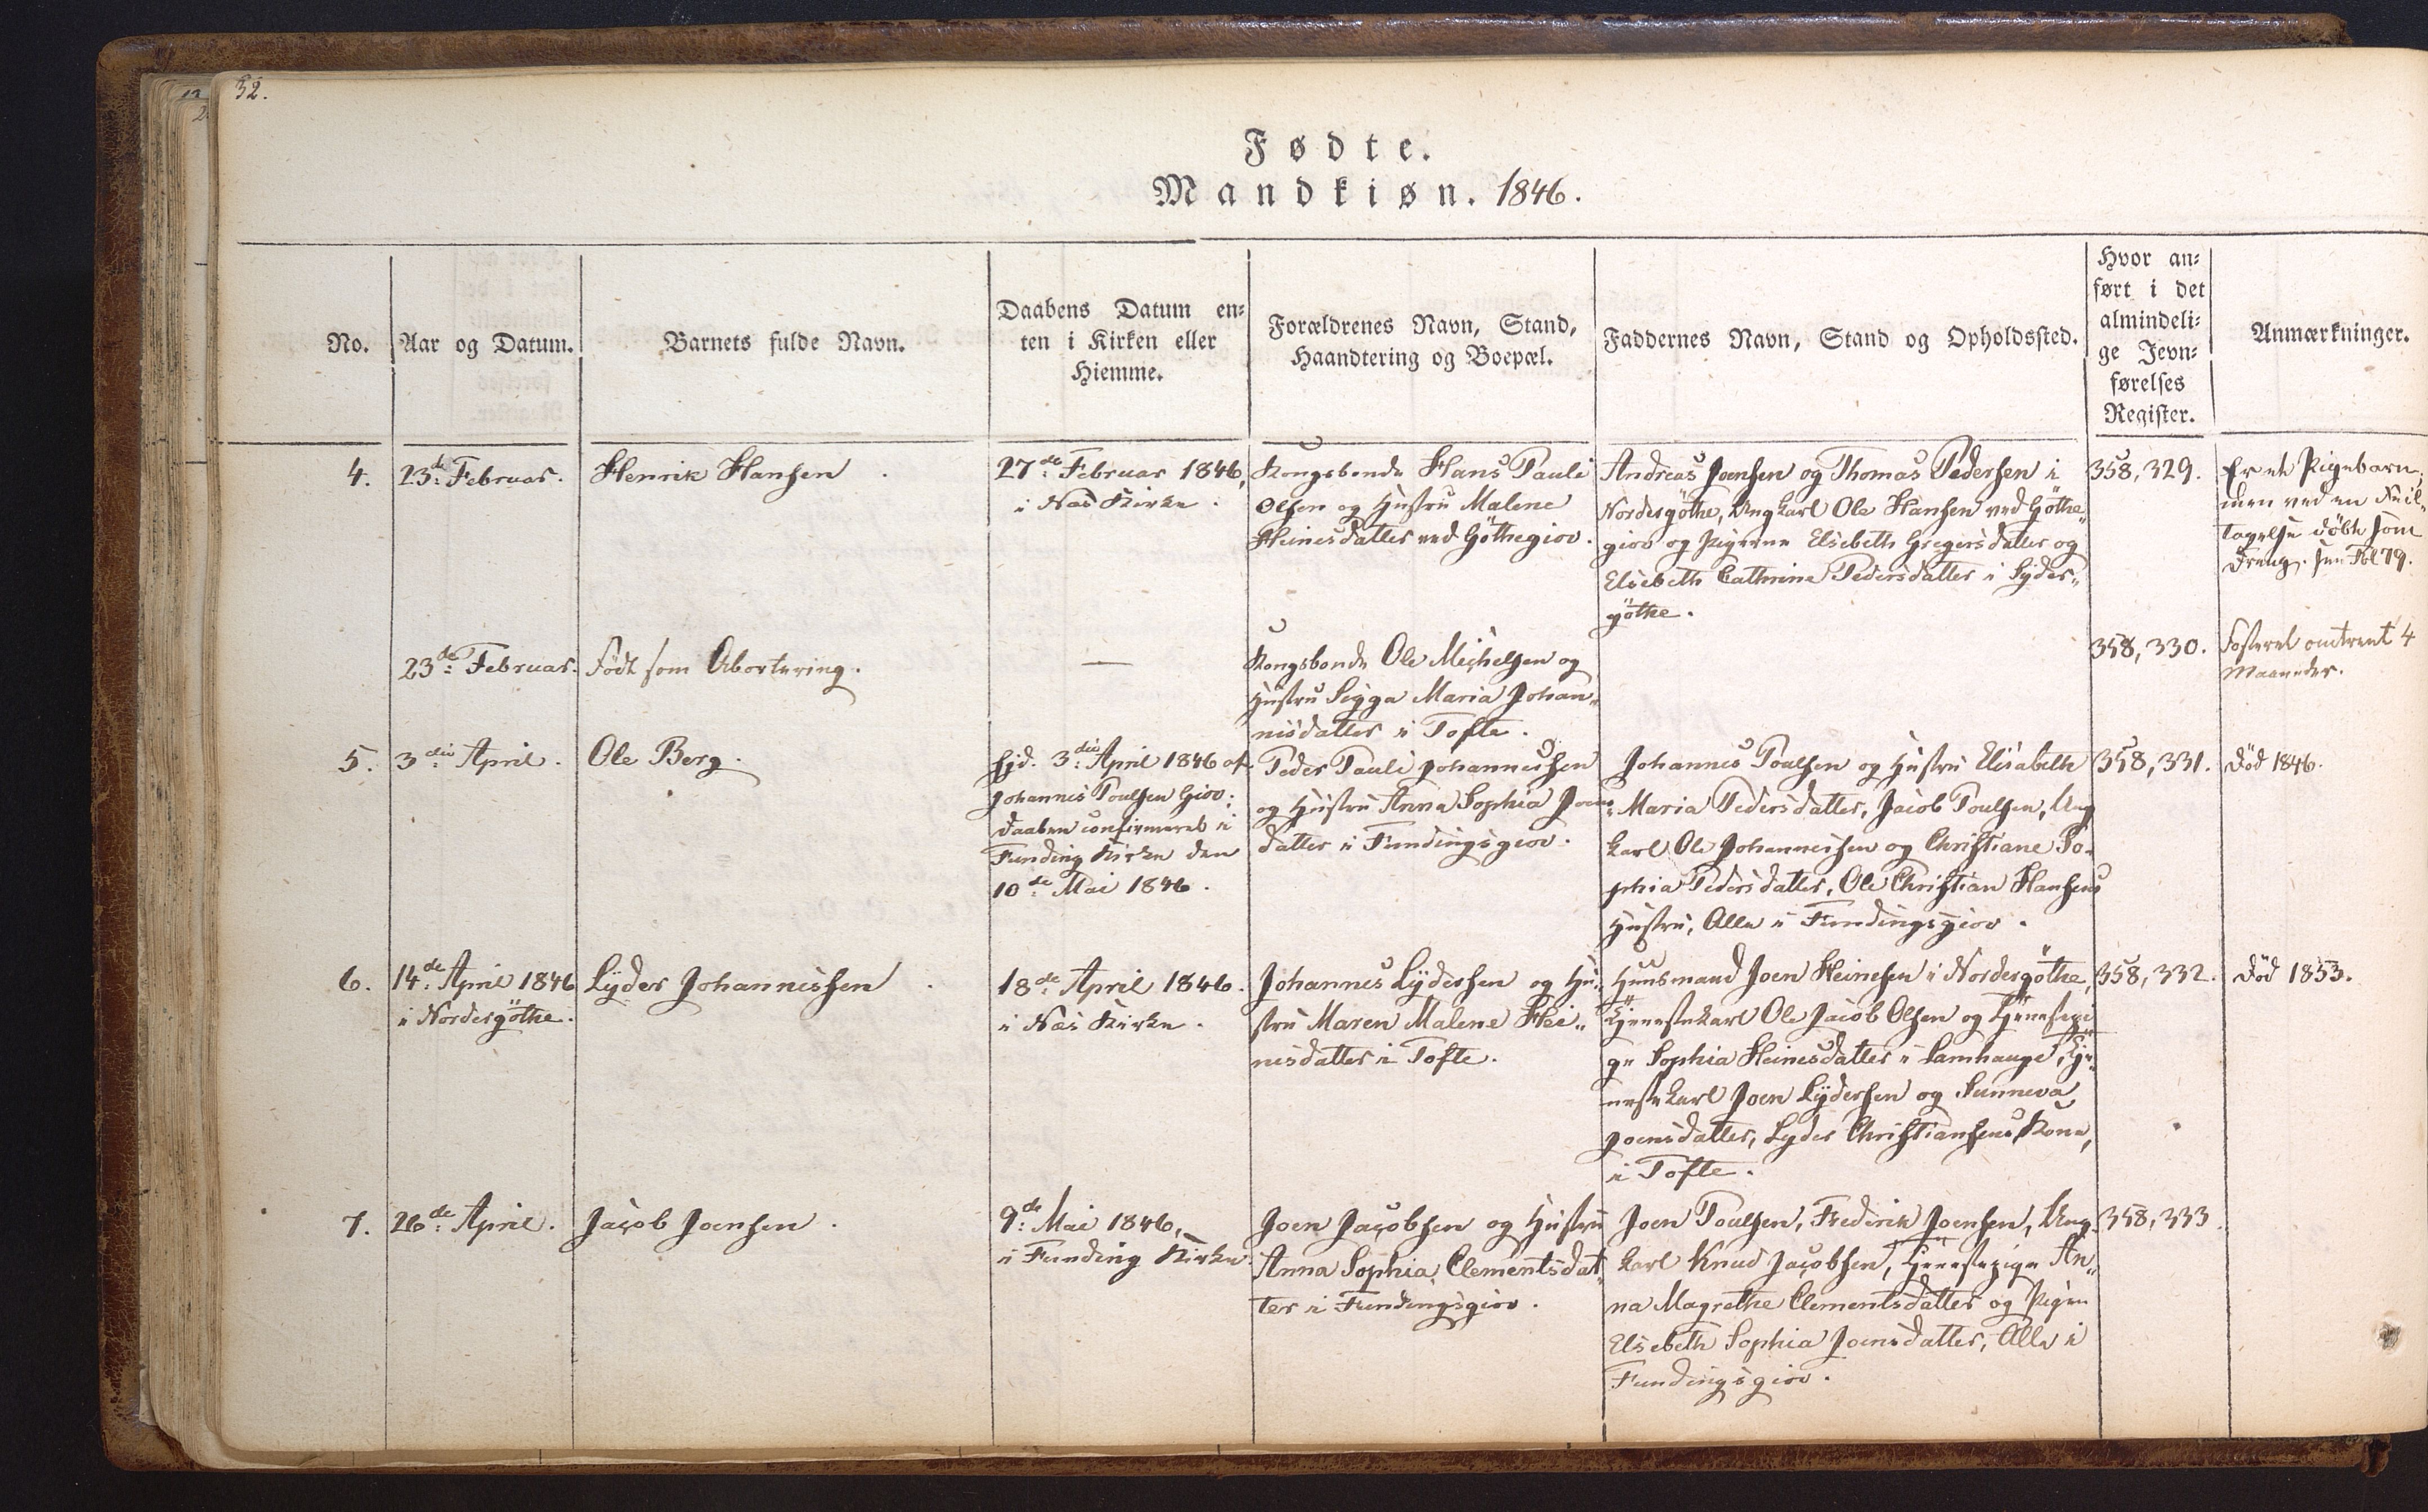 32.
Fødte.
Mandkiøn. 1846.
No.
Aar og Datum.
Barnets fulde Navn.
Daabens Datum en-
ten i Kirken eller
Hiemme.
Forældrenes Navn, Stand,
Haandtering og Boepæl.
Faddernes Navn, Stand og Opholdssted.
Hvor an-
ført i det
almindeli-
ge Jevn-
førelses
Register.
Anmærkninger.
4.
23de Februar.
Henrik Hansen
27de Februar 1846,
i Næs Kirke.
Kongsbonde Hans Pauli
Olsen og Hustru Malene
Heinesdatter ved Göthegiov.
Andreas Joensen og Thomas Pedersen i
Nordergöthe, Ungkarl Ole Hansen ved Göthe"
giov og Pigerne Elsebeth Gregersdatter og
Elsebeth Cathrine Pedersdatter i Syder"
göthe.
358, 329.
Er et Pigebarn,
men ved en Feil"
tagelse döbt som
Dreng. see Fol 79.
23de Februar.
Född som Abortering.
—
Kongsbonde Ole Michelsen og
Hustru Sigga Maria Johan"
nisdatter i Tofte.
358, 330.
Fosteret omtrent 4
Maaneder.
5.
3die April.
Ole Berg.
hjd. 3die April 1846 af
Johannes Poulsen Giov;
Daaben confirmeret i
Funding Kirke den
10de Mai 1846.
Peder Pauli Johannessen
og Hustru Anna Sophia Joens
datter i Fundingsgiov.
Johannes Poulsen og Hustru Elisabeth
Maria Pedersdatter, Jacob Poulsen, Ung
karl Ole Johannessen og Christiane So-
phia Pedersdatter, Ole Christian Hansens
Hustru, Alle i Fundingsgiov.
358, 331.
Död 1846.
6.
14de April 1846
i Nordergöthe.
Lÿder Johannessen
18de April 1846.
i Næs Kirke.
Johannes Lÿdersen og Hu"
stru Maren Malene Hei"
nesdatter i Tofte.
Huusmand Joen Heinesen i Nordergöthe,
Tjenestekarl Ole Jacob Olsen og Tjenestepi
ge Sophia Heinesdatter i Lamhauge, Tje"
nestekarl Joen Lÿdersen og Sunneva
Joensdatter, Lyder Christiansens Kone,
i Tofte.
358, 332.
Död 1853.
7.
26de April.
Jacob Joensen.
9de Mai 1846,
i Funding Kirke.
Joen Jacobsen og Hustru
Anna Sophia Clementsdat"
ter i Fundingsgiov.
Joen Poulsen, Frederik Joensen, Ung
karl Knud Jacobsen, Tjenestepige An"
na Magrethe Clementsdatter og Pigen
Elsebeth Sophia Joensdatter, Alle i
Fundingsgiov.
358, 333.